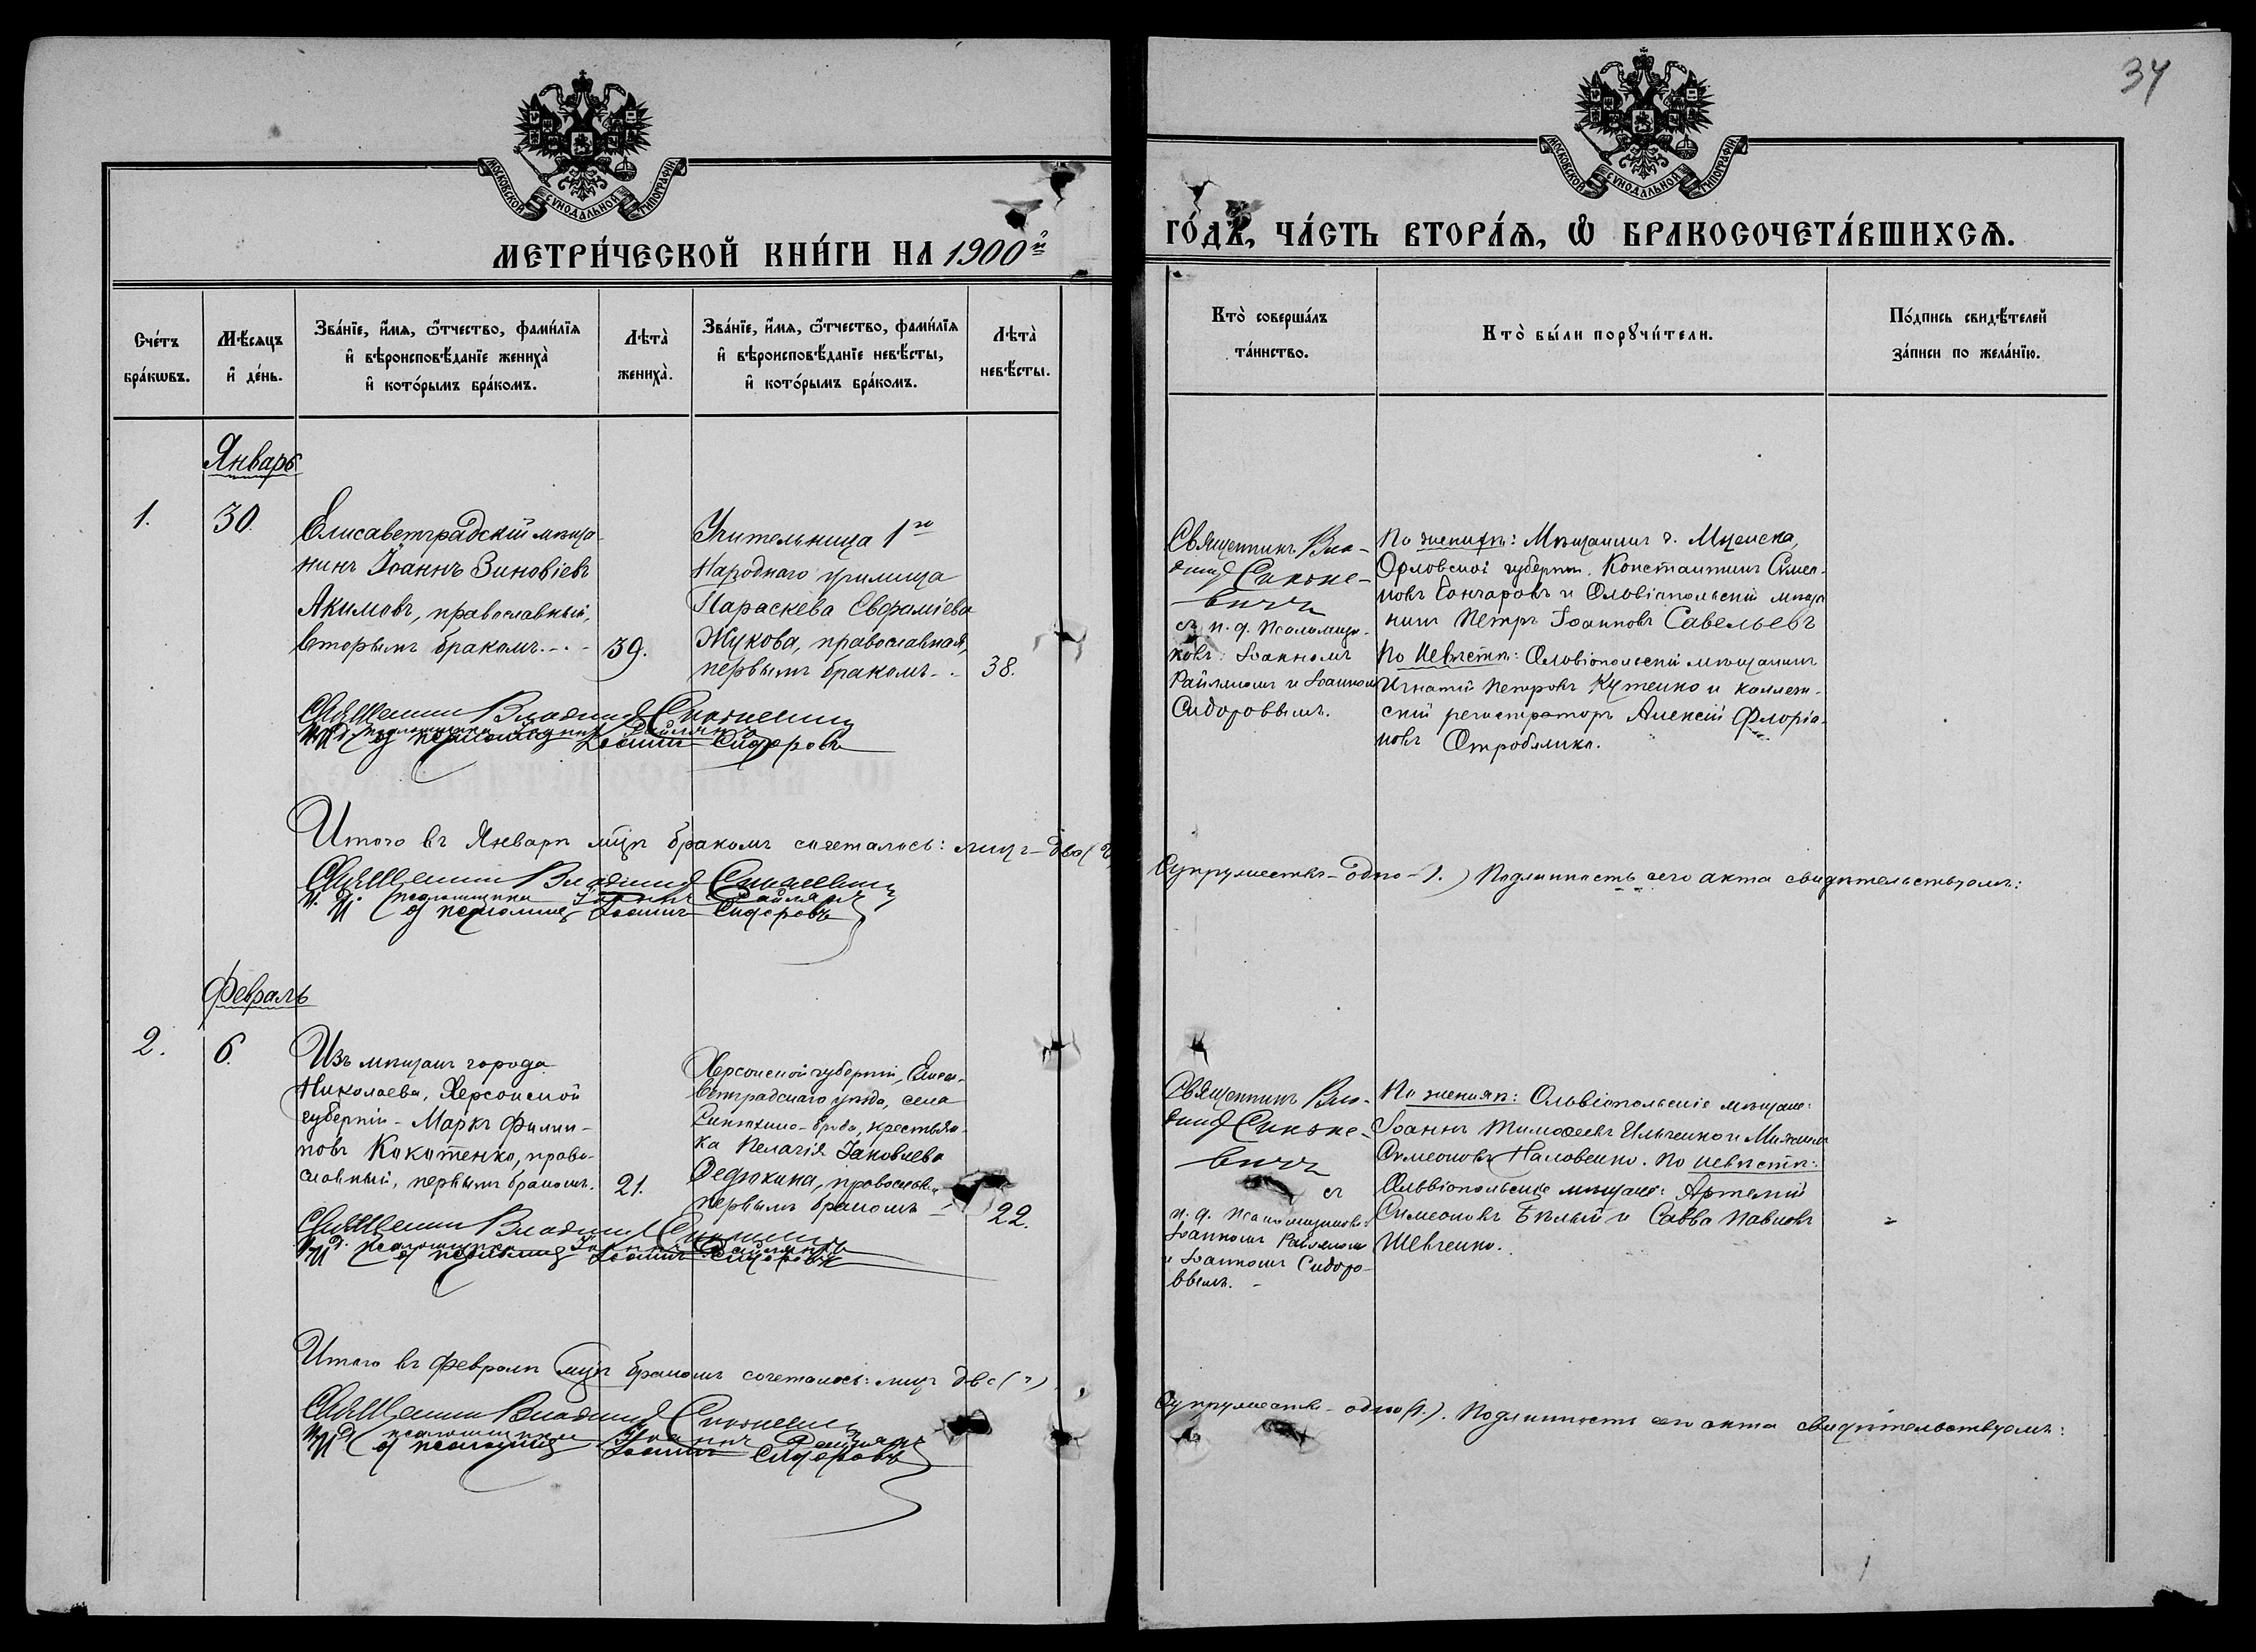 34
МОСКОВСКОЙ СѴНОДАЛЬНОЙ ТИПОГРАФІИ
МОСКОВСКОЙ СѴНОДАЛЬНОЙ ТИПОГРАФІИ
МЕТРИ́ЧЕСКОЙ КНИ́ГИ НА 1900й
ГО́ДꙊ, ЧА́СТЬ ВТОРА́Ѧ, Ѡ҆ БРАКОСОЧЕТА́ВШИХСѦ.
Сче́тъ
бра́кѡвъ.
Мѣ́сяцъ
и҆ де́нь.
Зва́нїе, и҆́мя, ѻ҆́тчество, фами́лїя
и҆ вѣроисповѣ́данїе жениха̀
и҆ кото́рымъ бра́комъ.
Лѣта̀
жениха̀.
Зва́нїе, и҆́мя, ѻ҆́тчество, фами́лїя
и҆ вѣроисповѣ́данїе невѣ́сты,
и҆ кото́рымъ бра́комъ.
Лѣта̀
невѣ́сты.
Кто̀ соверша́лъ
та́инство.
Кто̀ бы́ли порꙋчи́тели.
По́дпись свидѣ́телей
за́писи по жела́нїю.
Январь
1.
30.
Елисаветградскій мѣща-
нинъ Іоаннъ Зиновіевъ
Акимовъ, православный,
вторымъ бракомъ.
39.
Учительница 1го
Народнаго училища
Параскева
Жукова, православная,
первымъ бракомъ
38.
Священникъ Вла-
димір Синьке-
вичъ
съ и. д. псаломщи-
ковъ: Іоанномъ
и Іоанномъ
Сидоровымъ.
По женихѣ: Мѣщанинъ г. Мценска,
Орловской губерніи Константинъ Симео-
новъ Гончаровъ и Ольвіопольскій мѣща
нинъ Петръ Іоанновъ Савельевъ
По невѣстѣ: Ольвіопольскій мѣщанинъ
Игнатій Петровъ Куценко и коллеж-
скій регистраторъ Алексій Флоріа-
новъ
Священник Владимир Синькевич
И. д. псаломщика Іоаннъ
И. д. псаломщ Іоаннъ Сидоровъ
Итого въ Январѣ мцѣ бракомъ сочеталось: лицъ – два (2
Супружествъ – одно – 1.) Подлинность сего акта свидѣтельствуемъ:
Священник Владимир Синькевич
И. д. псаломщика Іоаннъ
И. д. псаломщ Іоаннъ Сидоровъ
Февраль
2.
6.
Изъ мѣщанъ города
Николаева, Херсонской
губерніи – Маркъ Филип-
повъ Кокотенко, право-
славный, первымъ бракомъ.
21.
Херсонской губерніи, Елиса-
ветградскаго уѣзда, села
крестьян-
ка Пелагія Іаковлева
Федюкина, православн.
первымъ бракомъ –
22.
Священникъ Вла-
димір Синьке-
вичъ
съ
и. д. псаломщиковъ:
Іоанномъ
и Іоанномъ Сидоро-
вымъ. –
По женихѣ: Ольвіопольскіе мѣщане:
Іоаннъ Тимоѳеевъ Ильченко и
Симеоновъ По невѣстѣ:
Ольвіопольскіе мѣщане: Артемій
Симеоновъ Бѣлый и Савва Павловъ
Шевченко.
Священник Владимир Синькевич
И. д. псаломщика Іоаннъ
И. д. псаломщ Іоаннъ Сидоровъ
Итого въ Февралѣ мцѣ бракомъ сочеталось: лицъ два (2)
Супружествъ – одно (1.). Подлинность сего акта свидѣтельствуемъ:
Священник Владимир Синькевич
И. д. псаломщика Іоаннъ
И. д. псаломщ Іоаннъ Сидоровъ